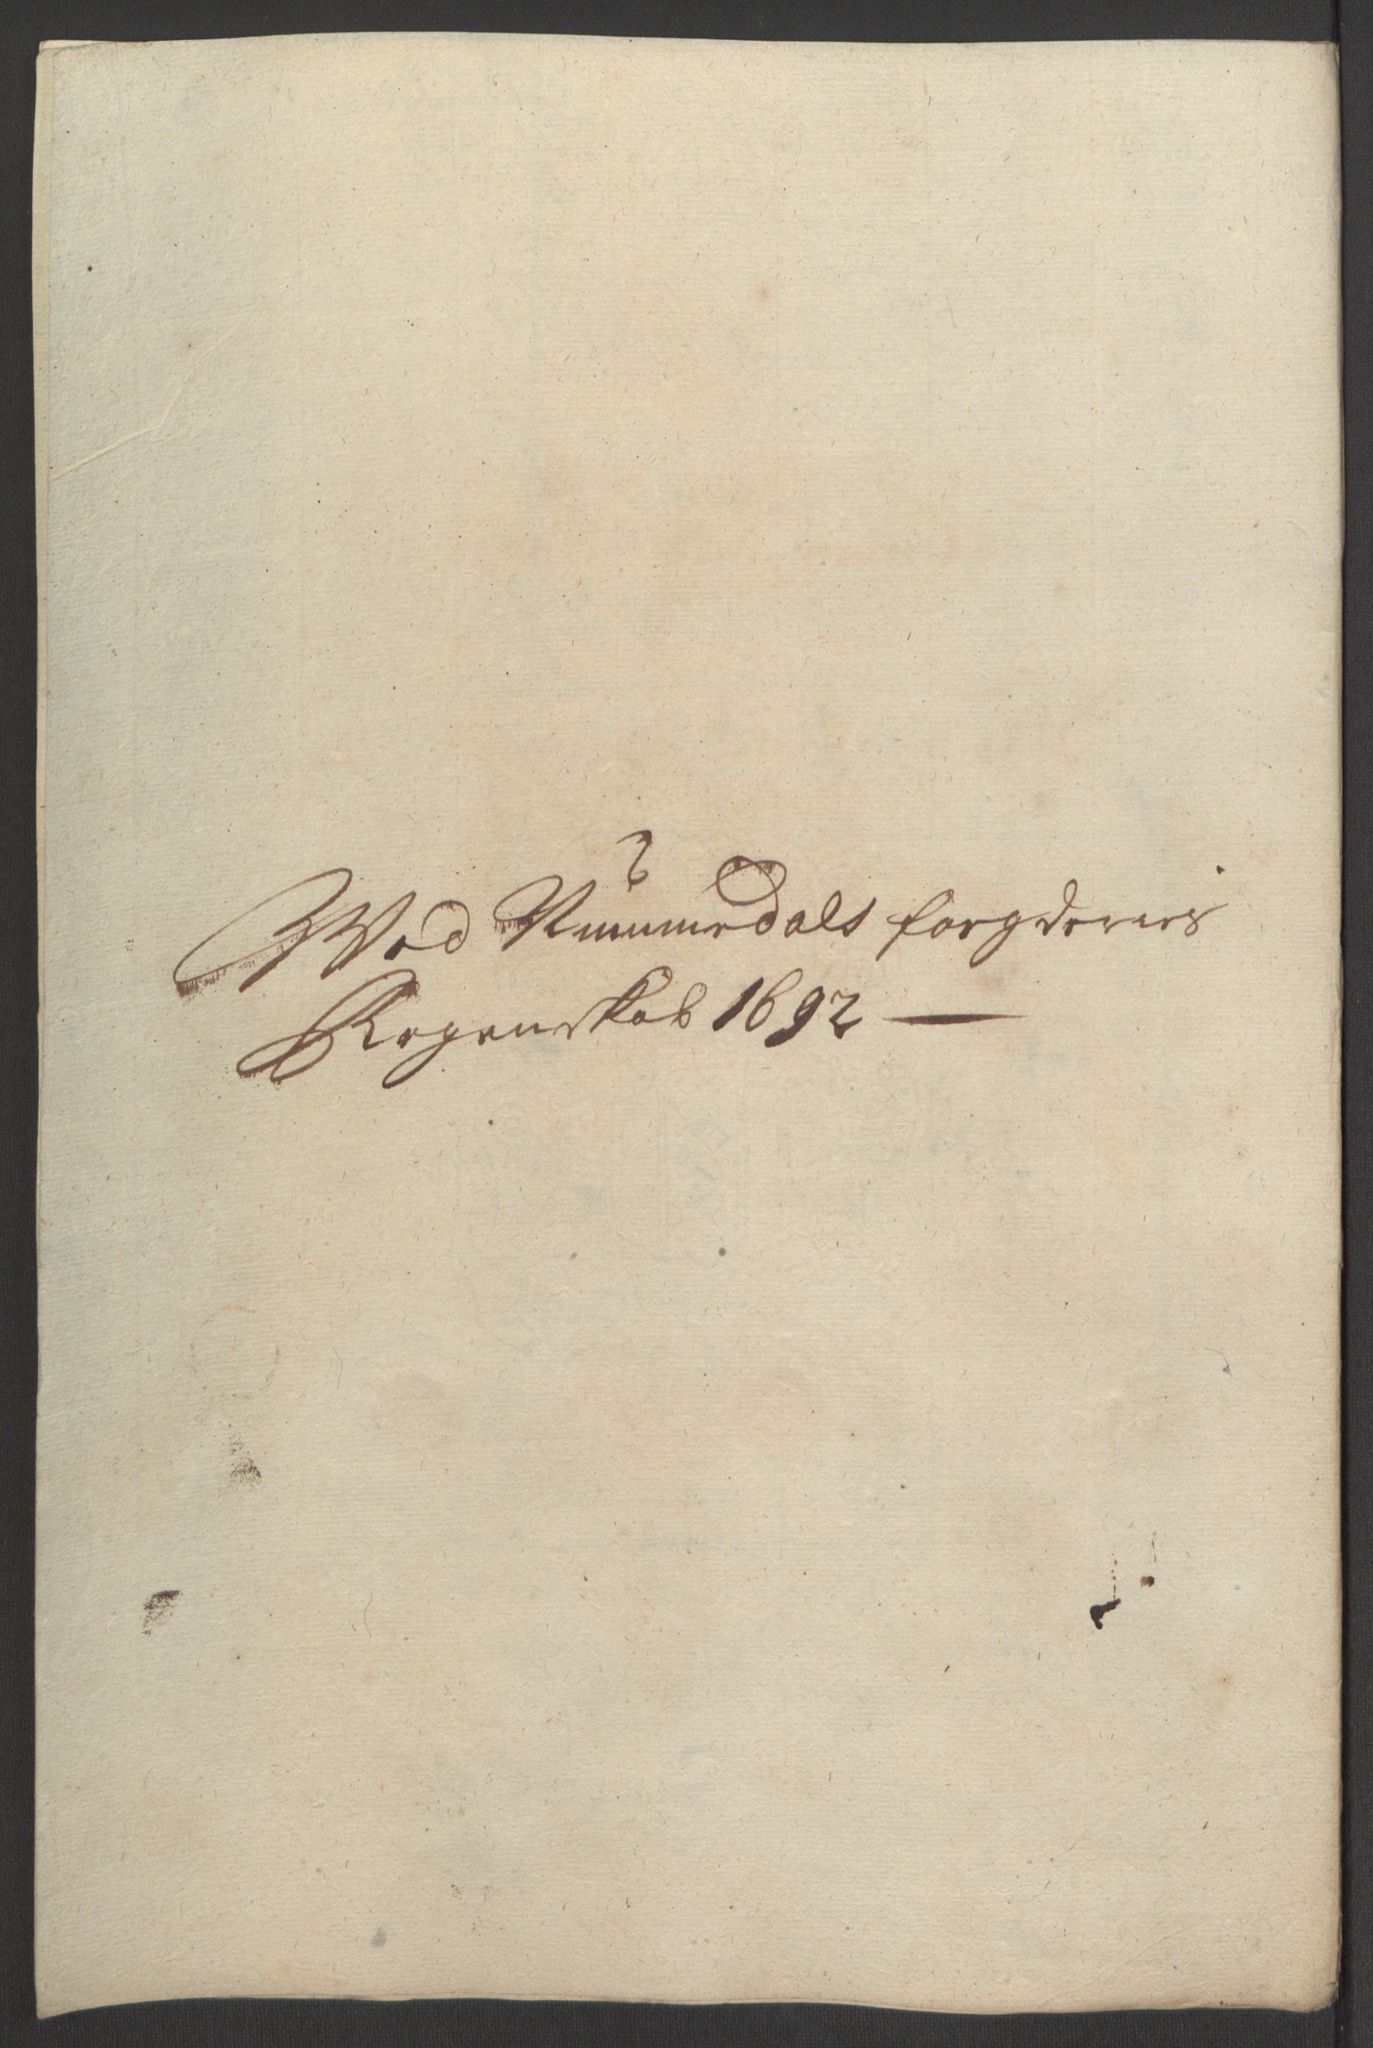 Wed Nummedals fougderies
Regenskab 1692